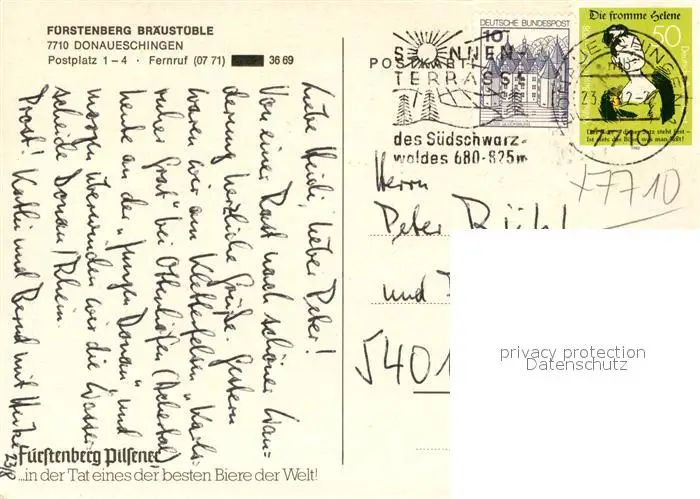 FÜRSTENBERG BRÄUSTÜBLE
7710 DONAUESCHINGEN
Postplatz 1-4 · Fernruf (07 71) 36 69
Liebe Heidi, lieber Peter!
Von einer Rast nach schöner Wan-
derung herzliche Grüße. Gestern
waren wir am Kletterfelsen "Karls-
ruher Grat" bei Ottenhöfen (Achertal)
heute an der "jungen Donau" und
morgen überwinden wir die Wasser-
scheide Donau/Rhein.
Prost! Kathi und Bernd mit
23/8
Fürstenberg Pilsener,
...in der Tat eines der besten Biere der Welt!
POSTKARTE
SONNEN-
TERRASSE
des Südschwarz-
waldes 680-825m
DEUTSCHE BUNDESPOST
10
Die fromme Helene
50
Das Gute - dieser Satz steht fest -
Ist stets das Böse, was man läßt!
7710
Herrn
Peter
und
5401
privacy protection
Datenschutz